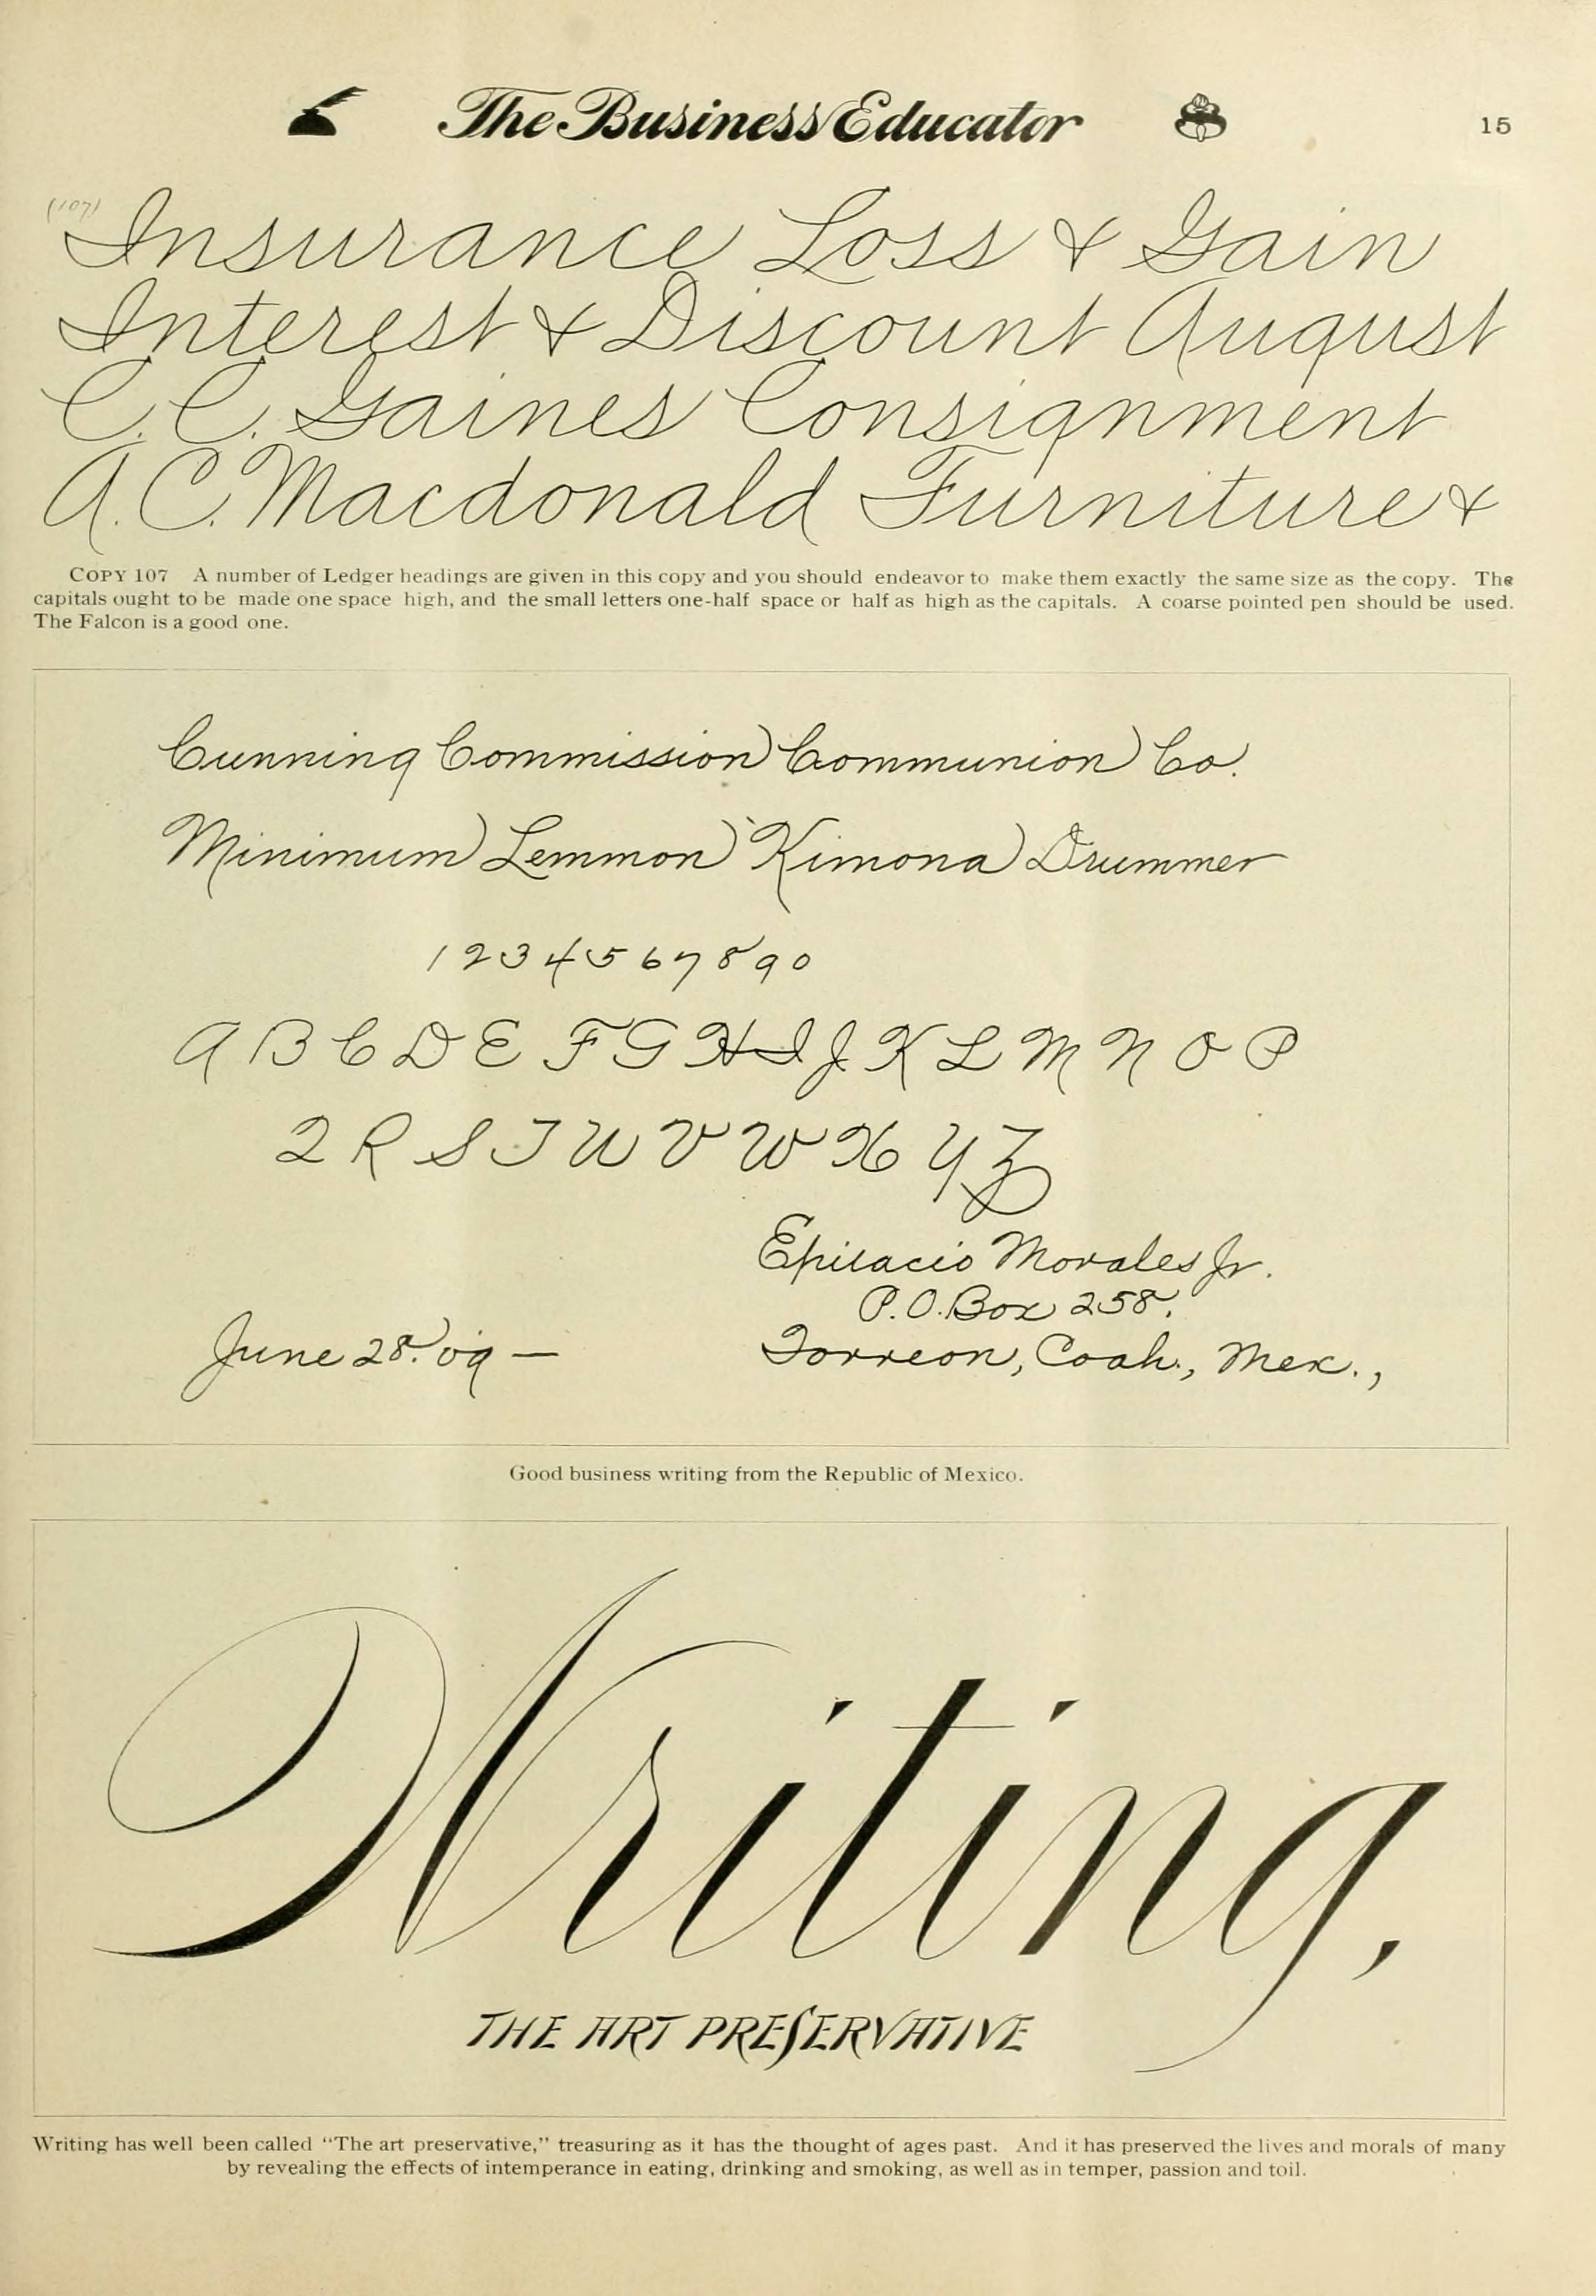 The Business Educator 15
(107)
Insurance Loss & Gain
Interest & Discount August
C. C. Gaines Consignment
A. C. Macdonald Furniture &
COPY 107 A number of Ledger headings are given in this copy and you should endeavor to make them exactly the same size as the copy. The
capitals ought to be made one space high, and the small letters one-half space or half as high as the capitals. A coarse pointed pen should be used.
The Falcon is a good one.
Cunning Commission Communion Co.
Minimum Lemmon Kimona Drummer
1 2 3 4 5 6 7 8 9 0
A B C D E F G H I J K L M N O P
Q R S T U V W X Y Z
Epitacio Morales Jr.
P.O. Box 258.
June 28. '09 — Torreon, Coah., Mex.,
Good business writing from the Republic of Mexico.
Writing,
THE ART PRESERVATIVE
Writing has well been called "The art preservative," treasuring as it has the thought of ages past. And it has preserved the lives and morals of many
by revealing the effects of intemperance in eating, drinking and smoking, as well as in temper, passion and toil.